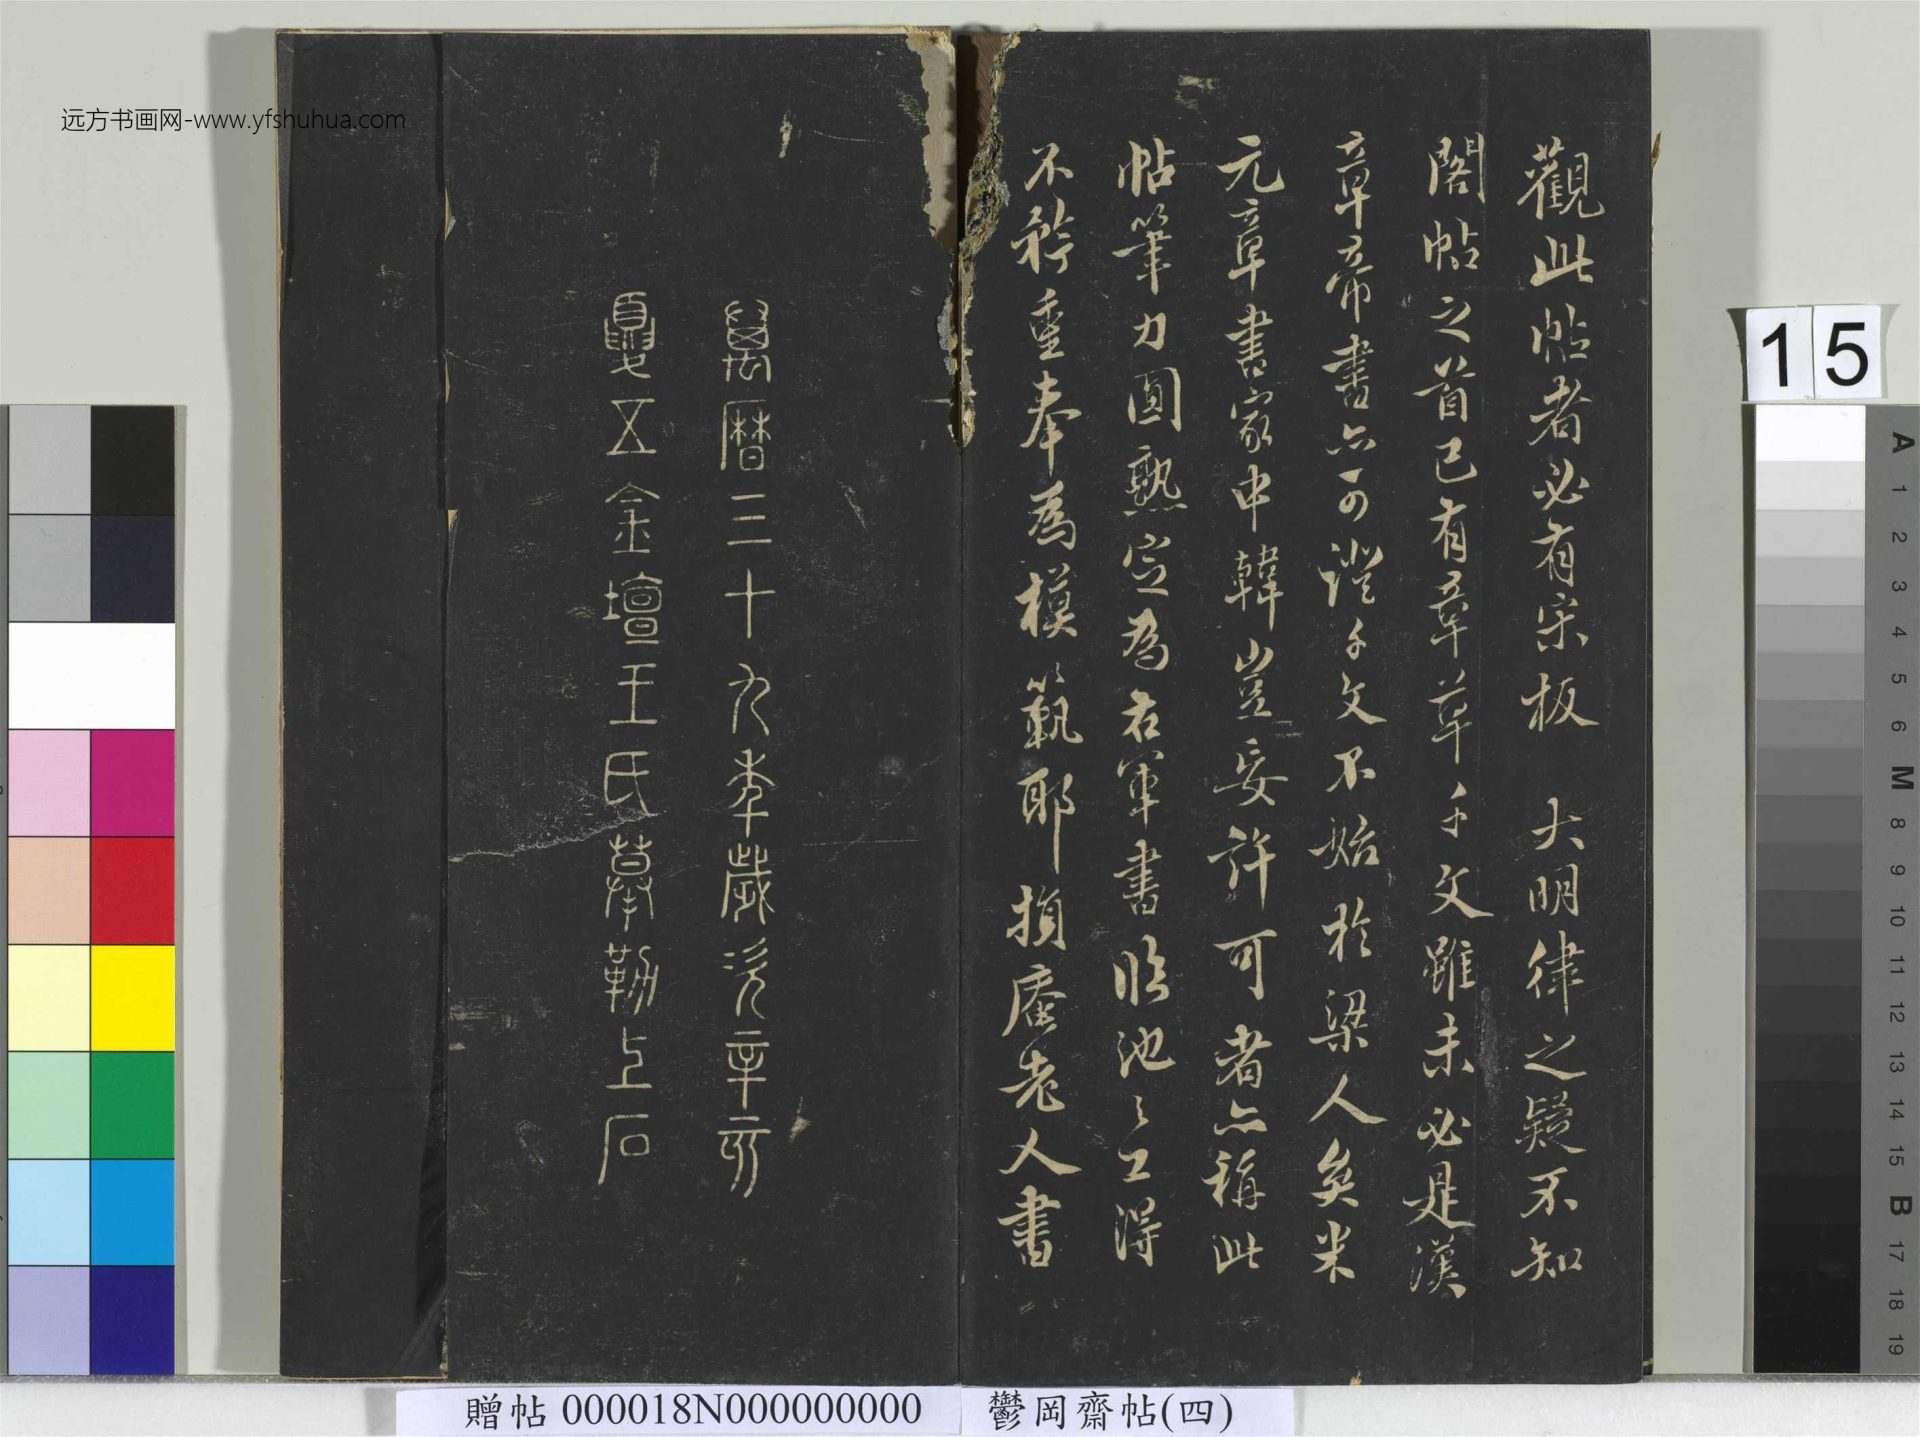 觀此帖者必有宋板 大明律之疑不知
閣帖之首已有章草千文雖未必是漢
章帝書亦可證千文不始於梁人矣米
元章書家申韓豈妄許可者亦稱此
帖筆力圓熟定為右軍書臨池之工得
不矜重奉為模範耶損庵老人書
萬曆三十九季歲次辛亥
夏五金壇王氏摹勒上石
远方书画网-www.yfshuhua.com
15
A
1
2
3
4
5
6
M
8
9
10
11
12
13
14
15
B
17
18
19
贈帖 000018N000000000
鬱岡齋帖(四)